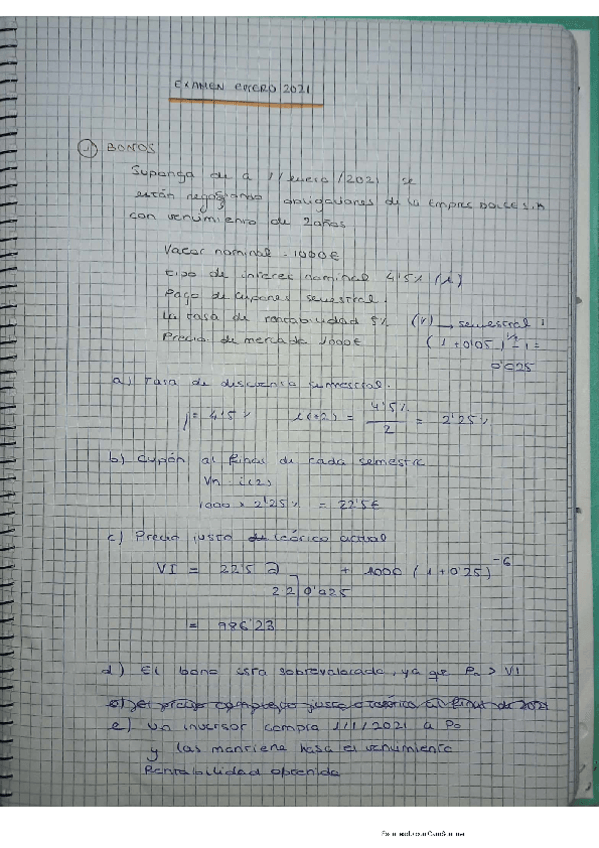 EXAMEN ENERO 2021
1 BONOS
Suponga de a 1/enero/2021 se
están negociando obligaciones de la empresa
con vencimiento de 2 años
Valor nominal . 1000€
tipo de interes nominal 4'5% (i)
Pago de cupones semestral.
La tasa de rentabilidad 5% (r) → semestral :
Precio de mercado 1000€ (1+0'05)^1/2 - 1 =
0'025
a) Tasa de descuento semestral.
j = 4'5% i(2) = 4'5% / 2 = 2'25%
b) Cupón al final de cada semestre
Vn i(2)
1000 × 2'25% = 22'5€
c) Precio justo de teórico actual
VI = 22'5 a + 1000 (1+0'25)^-6
2 2 0'025
= 986'23
d) El bono esta sobrevalorado, ya que Po > VI
e) el precio completo justo o teórico al final de 2021
e) Un inversor compra 1/1/2021 a Po
y las mantiene hasa el vencimiento
Rentabilidad obtenida